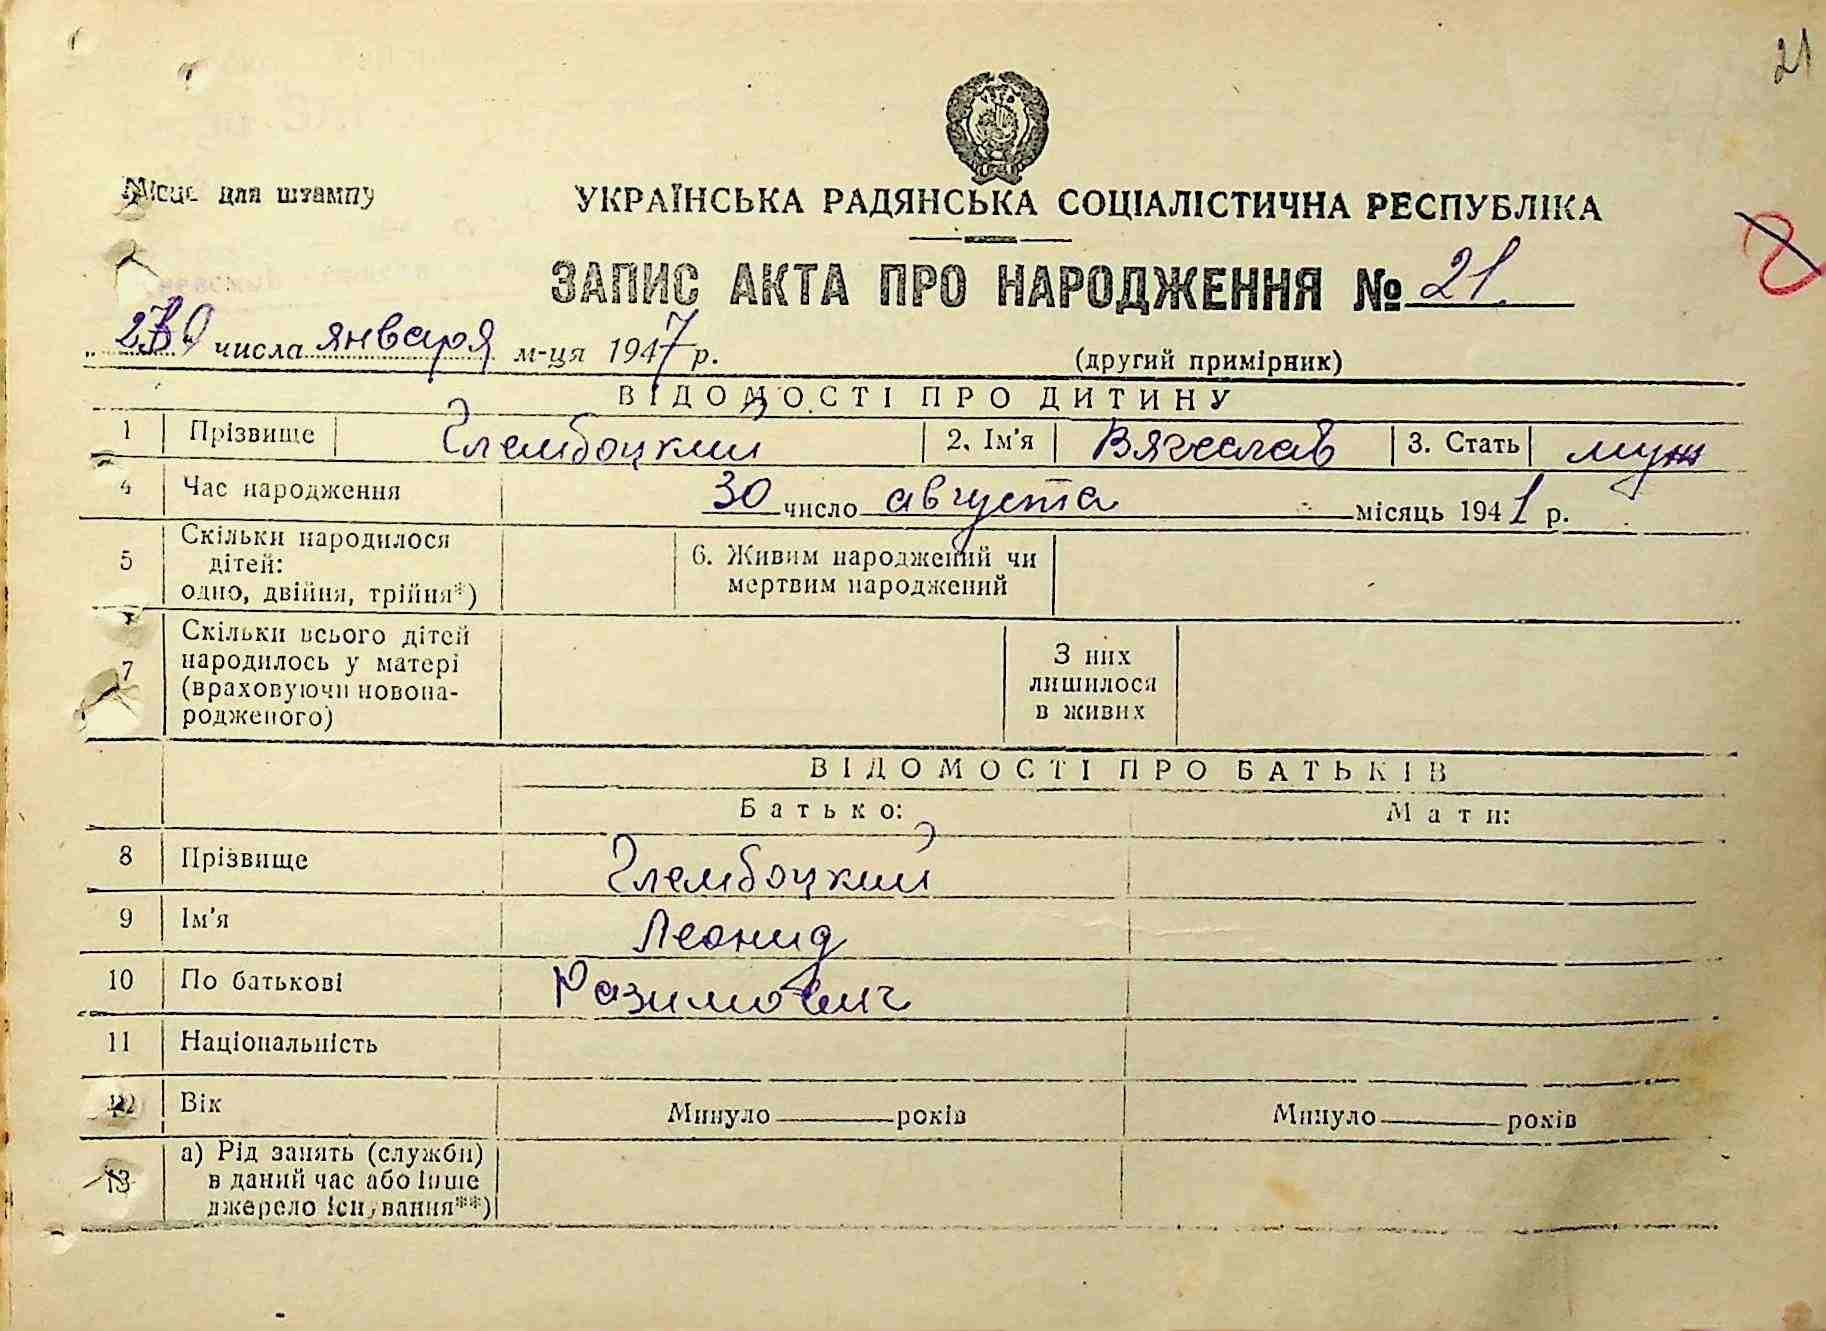 21
Місце для штампу
УКРАЇНСЬКА РАДЯНСЬКА СОЦІАЛІСТИЧНА РЕСПУБЛІКА
ЗАПИС АКТА ПРО НАРОДЖЕННЯ № 21.
числа января м-ця 1947 р.
(другий примірник)
ВІДОМОСТІ ПРО ДИТИНУ
1 Прізвище Глембоцкий 2. Ім'я Вячеслав 3. Стать муж
4 Час народження 30 число августа місяць 1941 р.
5 Скільки народилося дітей: одно, двійня, трійня*) 6. Живим народжений чи мертвим народжений
7 Скільки всього дітей народилось у матері (враховуючи новонародженого) З них лишилося в живих
ВІДОМОСТІ ПРО БАТЬКІВ
Батько: Мати:
8 Прізвище Глембоцкий
9 Ім'я Леонид
10 По батькові
11 Національність
12 Вік Минуло років Минуло років
13 а) Рід занять (служби) в даний час або інше джерело існування**)